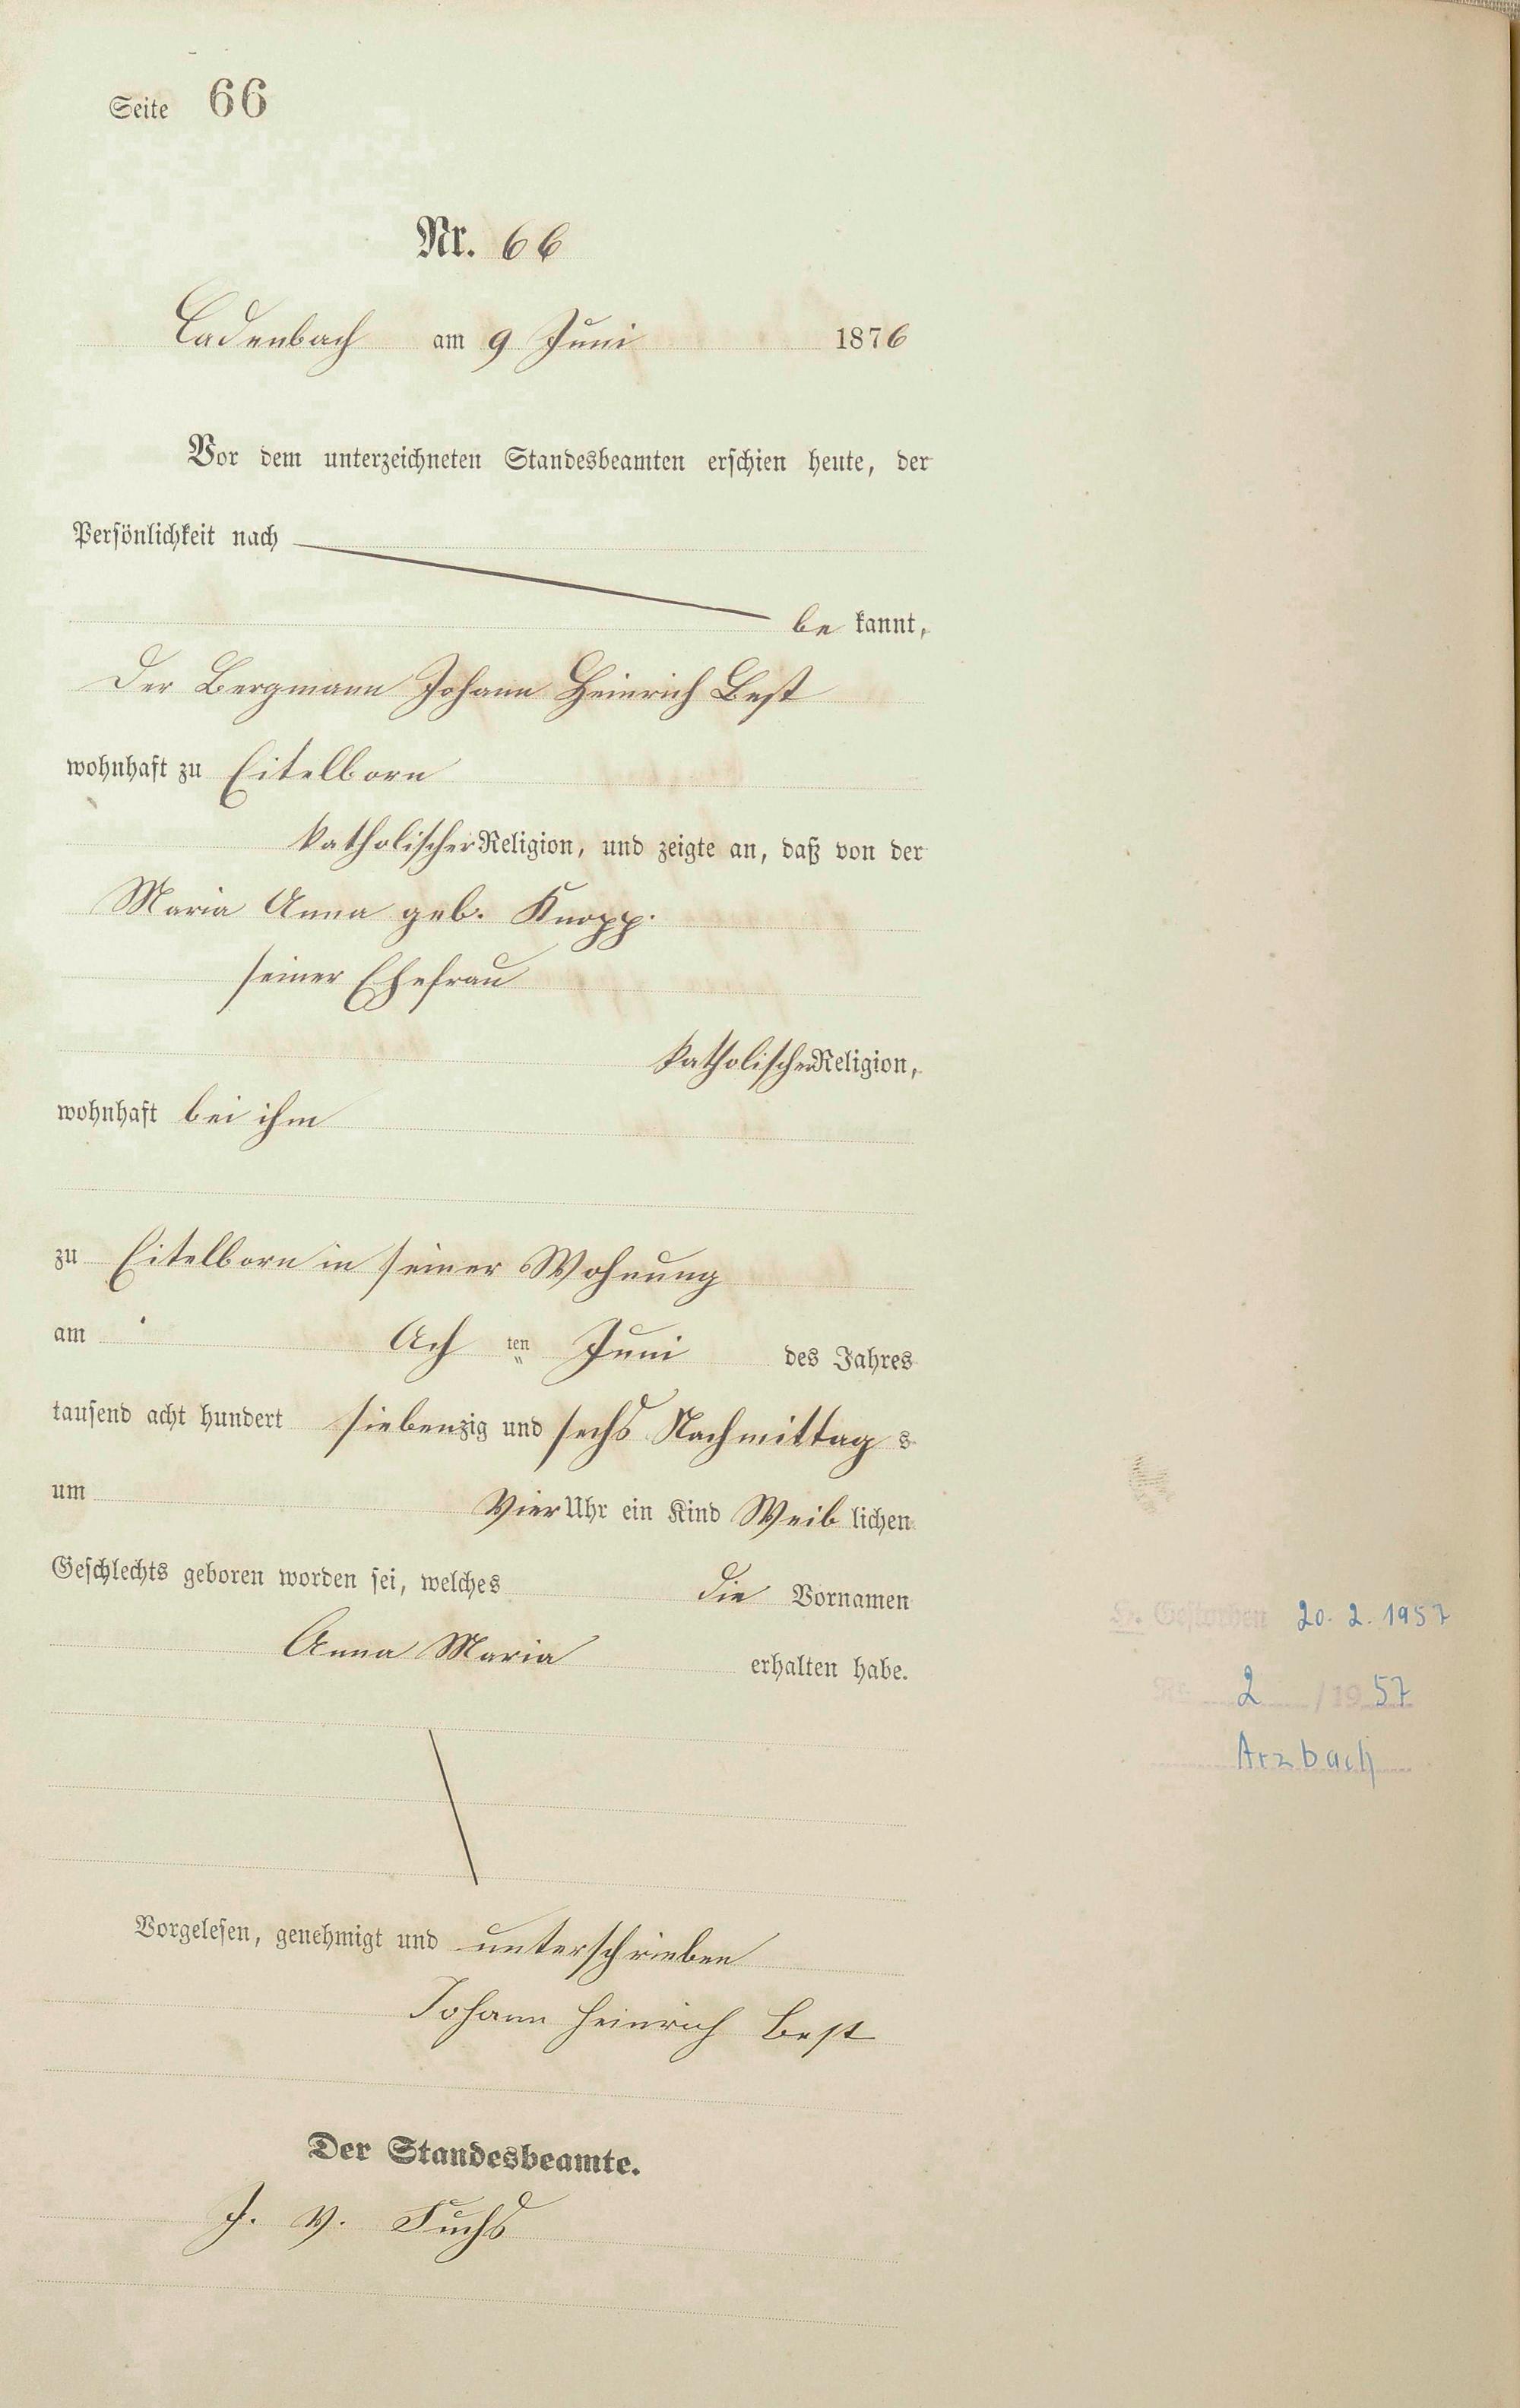 Seite 66
Nr. 66
Cadenbach am 9 Juni 1876
Vor dem unterzeichneten Standesbeamten erschien heute, der
Persönlichkeit nach
be kannt,
Der Bergmann Johann Heinrich Best
wohnhaft zu Eitelborn
katholischer Religion, und zeigte an, daß von der
Maria Anna geb. Knopp.
seiner Ehefrau
katholischer Religion,
wohnhaft bei ihm
zu Eitelborn in seiner Wohnung
am Ach ten Juni des Jahres
tausend acht hundert siebenzig und sechs Nachmittag s
um Vier Uhr ein Kind Weib lichen
Geschlechts geboren worden sei, welches die Vornamen
Anna Maria erhalten habe.
H. Gestorben 20. 2. 1957
Nr. 2 / 19 57
Arzbach
Vorgelesen, genehmigt und unterschrieben
Johann Heinrich Best
Der Standesbeamte.
J. V. Fuchs